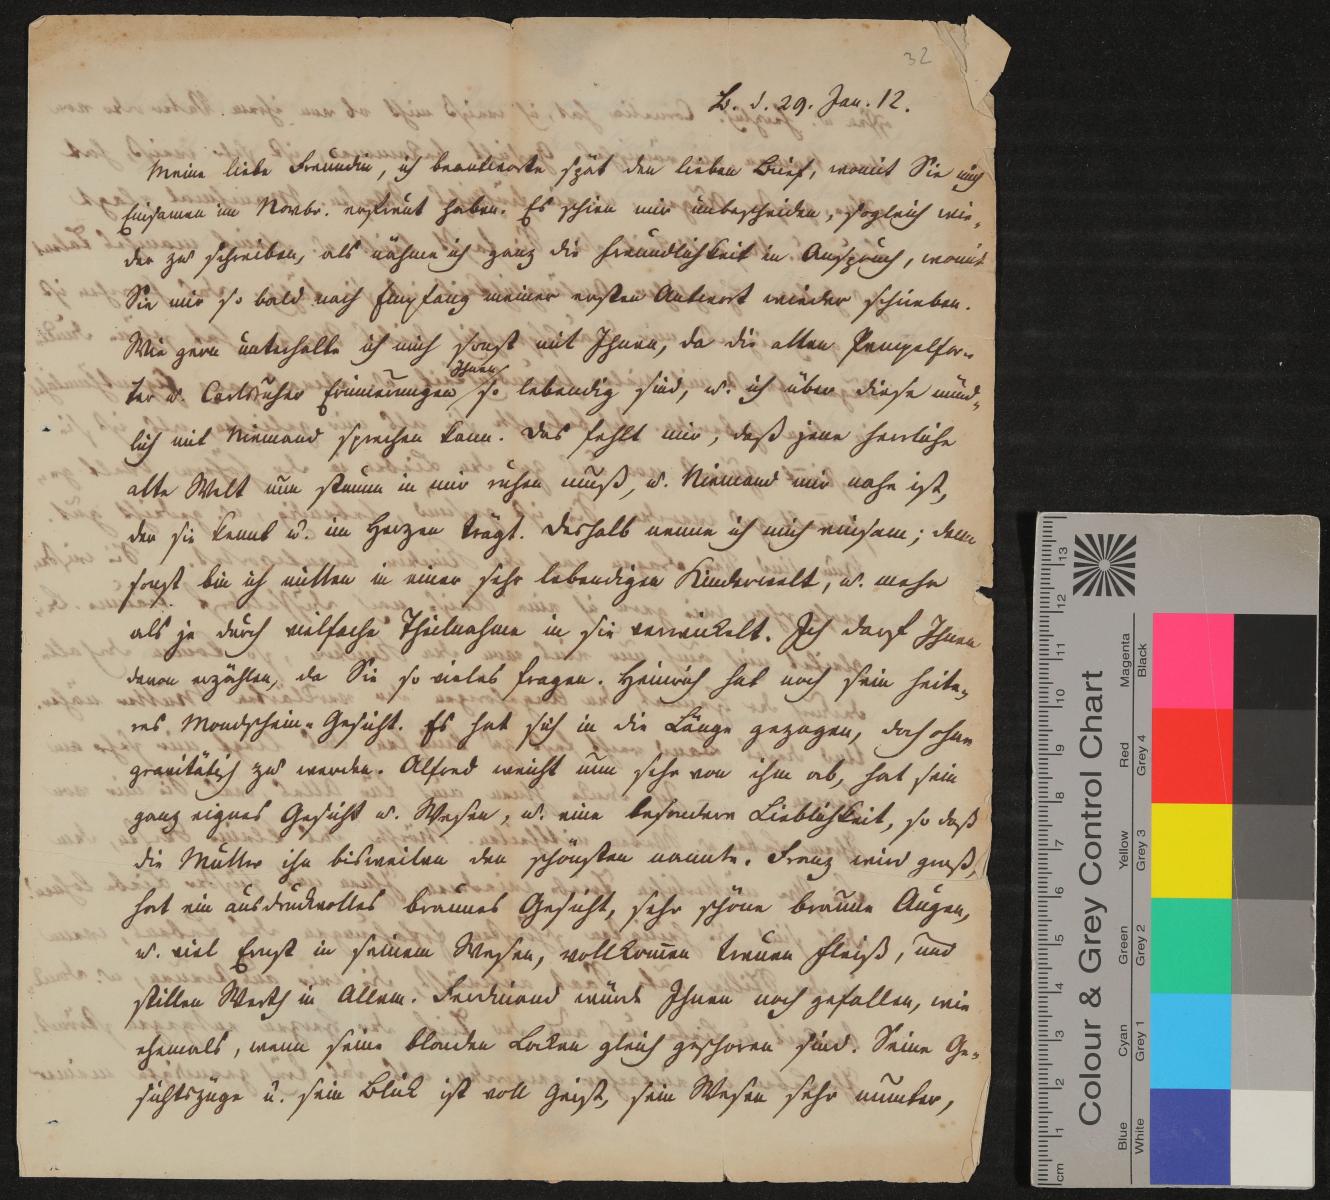 32
B. d. 29. Jan. 12.
Meine liebe Freundin, ich beantworte spät den lieben Brief, womit Sie mich
Einsamen im Novbr. erfreut haben. Es schien mir unbescheiden, sogleich wie-
der zu schreiben, als nähme ich ganz die Freundlichkeit in Anspruch, womit
Sie mir so bald nach Empfang meiner ersten Antwort wieder schrieben.
Wie gern unterhalte ich mich sonst mit Ihnen, da die alten Pempelfor-
ter u. Carlsruher Erinnerungen Ihnen so lebendig sind, u. ich über diese münd-
lich mit Niemand sprechen kann. Das fehlt mir, daß jene herrliche
alte Welt nun stumm in mir ruhen muß, u. Niemand mir nahe ist,
der sie kennt u. im Herzen trägt. Deshalb nenne ich mich einsam; denn
sonst bin ich mitten in einer sehr lebendigen Kinderwelt, u. mehr
als je durch vielfache Theilnahme in sie verwickelt. Ich darf Ihnen
davon erzählen, da Sie so vieles fragen. Heinrich hat noch sein heite-
res Mondschein-Gesicht. Es hat sich in die Länge gezogen, doch ohne
gravitätisch zu werden. Alfred weicht nun sehr von ihm ab, hat sein
ganz eignes Gesicht u. Wesen, u. eine besondere Lieblichkeit, so daß
die Mutter ihn bisweilen den schönsten nannte. Franz wird groß,
hat ein ausdruckvolles braunes Gesicht, sehr schöne braune Augen,
u. viel Ernst in seinem Wesen, vollkomen treuen Fleiß, und
stillen Werth in Allem. Ferdinand würde Ihnen noch gefallen, wie
ehemals, wenn seine blonden Locken gleich geschoren sind. Seine Ge-
sichtszüge u. sein Blick ist voll Geist, sein Wesen sehr munter,
Colour & Grey Control Chart
Blue Cyan Green Yellow Red Magenta
White Grey 1 Grey 2 Grey 3 Grey 4 Black
cm 1 2 3 4 5 6 7 8 9 10 11 12 13